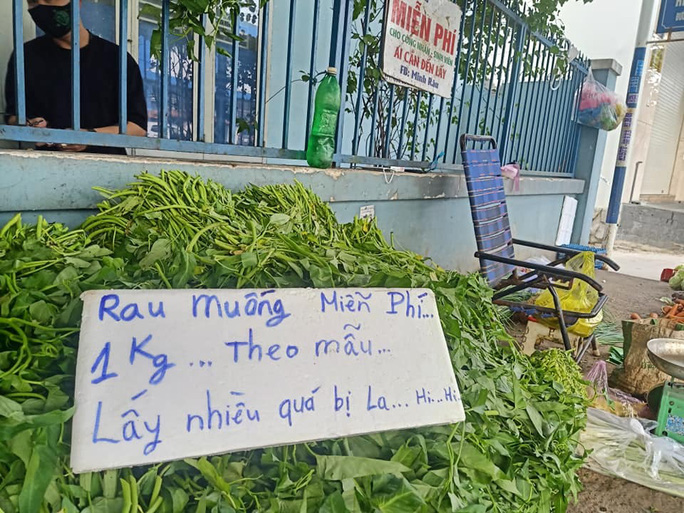 MIỄN PHÍ
CHO CÔNG NHÂN, SINH VIÊN
AI CẦN ĐẾN LẤY
FB: Minh Râu
Rau muống Miễn Phí...
1 Kg... Theo mẫu...
Lấy nhiều quá bị La... Hi..Hi.